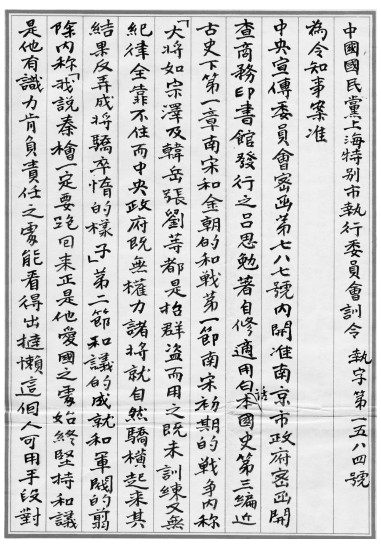 中國國民黨上海特别市執行委員會訓令 執字第一五八四號
為令知事案准
中央宣傳委員會密函第七八七號內開准南京市政府密函開
查商務印書館發行之吕思勉著自修適用白話本國史第三編近
古史下第一章南宋和金朝的和戰第一節南宋初期的戰爭內称
「大将如宗澤及韓岳張劉等都是招群盗而用之既未訓練又無
紀律全靠不住而中央政府既無權力諸将就自然驕横起来其
結果反弄成将驕卒惰的樣子」第二節和議的成就和軍閥的翦
除内称「我説秦檜一定要跑回来正是他愛國之處始終堅持和議
是他有識力肯負責任之處能看得出撻懶這個人可用手段對